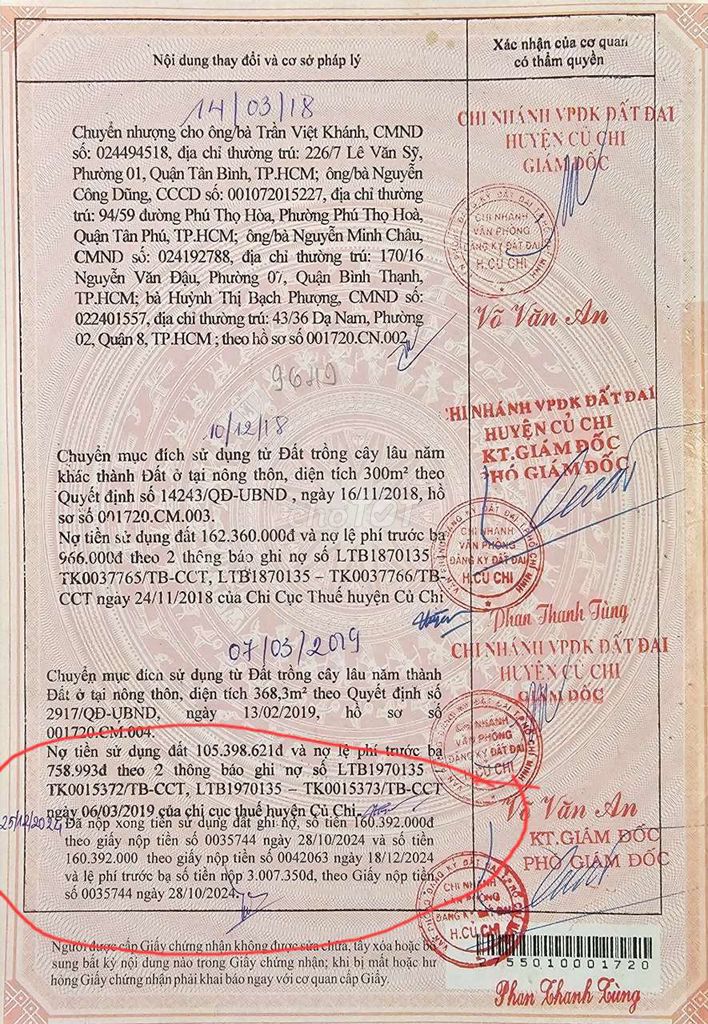 Nội dung thay đổi và cơ sở pháp lý
Xác nhận của cơ quan
có thẩm quyền
14/03/18
Chuyển nhượng cho ông/bà Trần Việt Khánh, CMND
số: 024494518, địa chỉ thường trú: 226/7 Lê Văn Sỹ,
Phường 01, Quận Tân Bình, TP.HCM; ông/bà Nguyễn
Công Dũng, CCCD số: 001072015227, địa chỉ thường
trú: 94/59 đường Phú Thọ Hòa, Phường Phú Thọ Hoà,
Quận Tân Phú, TP.HCM; ông/bà Nguyễn Minh Châu,
CMND số: 024192788, địa chỉ thường trú: 170/16
Nguyễn Văn Đậu, Phường 07, Quận Bình Thạnh,
TP.HCM; bà Huỳnh Thị Bạch Phượng, CMND số:
022401557, địa chỉ thường trú: 43/36 Dạ Nam, Phường
02, Quận 8, TP.HCM ; theo hồ sơ số 001720.CN.002
CHI NHÁNH VPĐK ĐẤT ĐAI
HUYỆN CỦ CHI
GIÁM ĐỐC
CHI NHÁNH
VĂN PHÒNG
ĐĂNG KÝ ĐẤT ĐAI
H.CỦ CHI
Võ Văn An
10/12/18
Chuyển mục đích sử dụng từ Đất trồng cây lâu năm
khác thành Đất ở tại nông thôn, diện tích 300m² theo
Quyết định số 14243/QĐ-UBND , ngày 16/11/2018, hồ
sơ số 001720.CM.003.
Nợ tiền sử dụng đất 162.360.000đ và nợ lệ phí trước bạ
966.000đ theo 2 thông báo ghi nợ số LTB1870135
TK0037765/TB-CCT, LTB1870135 – TK0037766/TB-
CCT ngày 24/11/2018 của Chi Cục Thuế huyện Củ Chi
CHI NHÁNH VPĐK ĐẤT ĐAI
HUYỆN CỦ CHI
KT.GIÁM ĐỐC
PHÓ GIÁM ĐỐC
CHI NHÁNH
VĂN PHÒNG
ĐĂNG KÝ ĐẤT ĐAI
H.CỦ CHI
Phan Thanh Tùng
07/03/2019
Chuyển mục đích sử dụng từ Đất trồng cây lâu năm thành
Đất ở tại nông thôn, diện tích 368,3m² theo Quyết định số
2917/QĐ-UBND, ngày 13/02/2019, hồ sơ số
001720.CM.004.
Nợ tiền sử dụng đất 105.398.621đ và nợ lệ phí trước bạ
758.993đ theo 2 thông báo ghi nợ số LTB1970135
TK0015372/TB-CCT, LTB1970135 – TK0015373/TB-CCT
ngày 06/03/2019 của chi cục thuế huyện Củ Chi
CHI NHÁNH VPĐK ĐẤT ĐAI
HUYỆN CỦ CHI
GIÁM ĐỐC
CHI NHÁNH
VĂN PHÒNG
ĐĂNG KÝ ĐẤT ĐAI
H.CỦ CHI
Võ Văn An
Đã nộp xong tiền sử dụng đất ghi nợ, số tiền 160.392.000đ
theo giấy nộp tiền số 0035744 ngày 28/10/2024 và số tiền
160.392.000 theo giấy nộp tiền số 0042063 ngày 18/12/2024
và lệ phí trước bạ số tiền nộp 3.007.350đ, theo Giấy nộp tiền
số 0035744 ngày 28/10/2024.
KT.GIÁM ĐỐC
PHÓ GIÁM ĐỐC
CHI NHÁNH
VĂN PHÒNG
ĐĂNG KÝ ĐẤT ĐAI
H.CỦ CHI
Phan Thanh Tùng
Người được cấp Giấy chứng nhận không được sửa chữa, tẩy xóa hoặc bổ
sung bất kỳ nội dung nào trong Giấy chứng nhận; khi bị mất hoặc hư
hỏng Giấy chứng nhận phải khai báo ngay với cơ quan cấp Giấy.